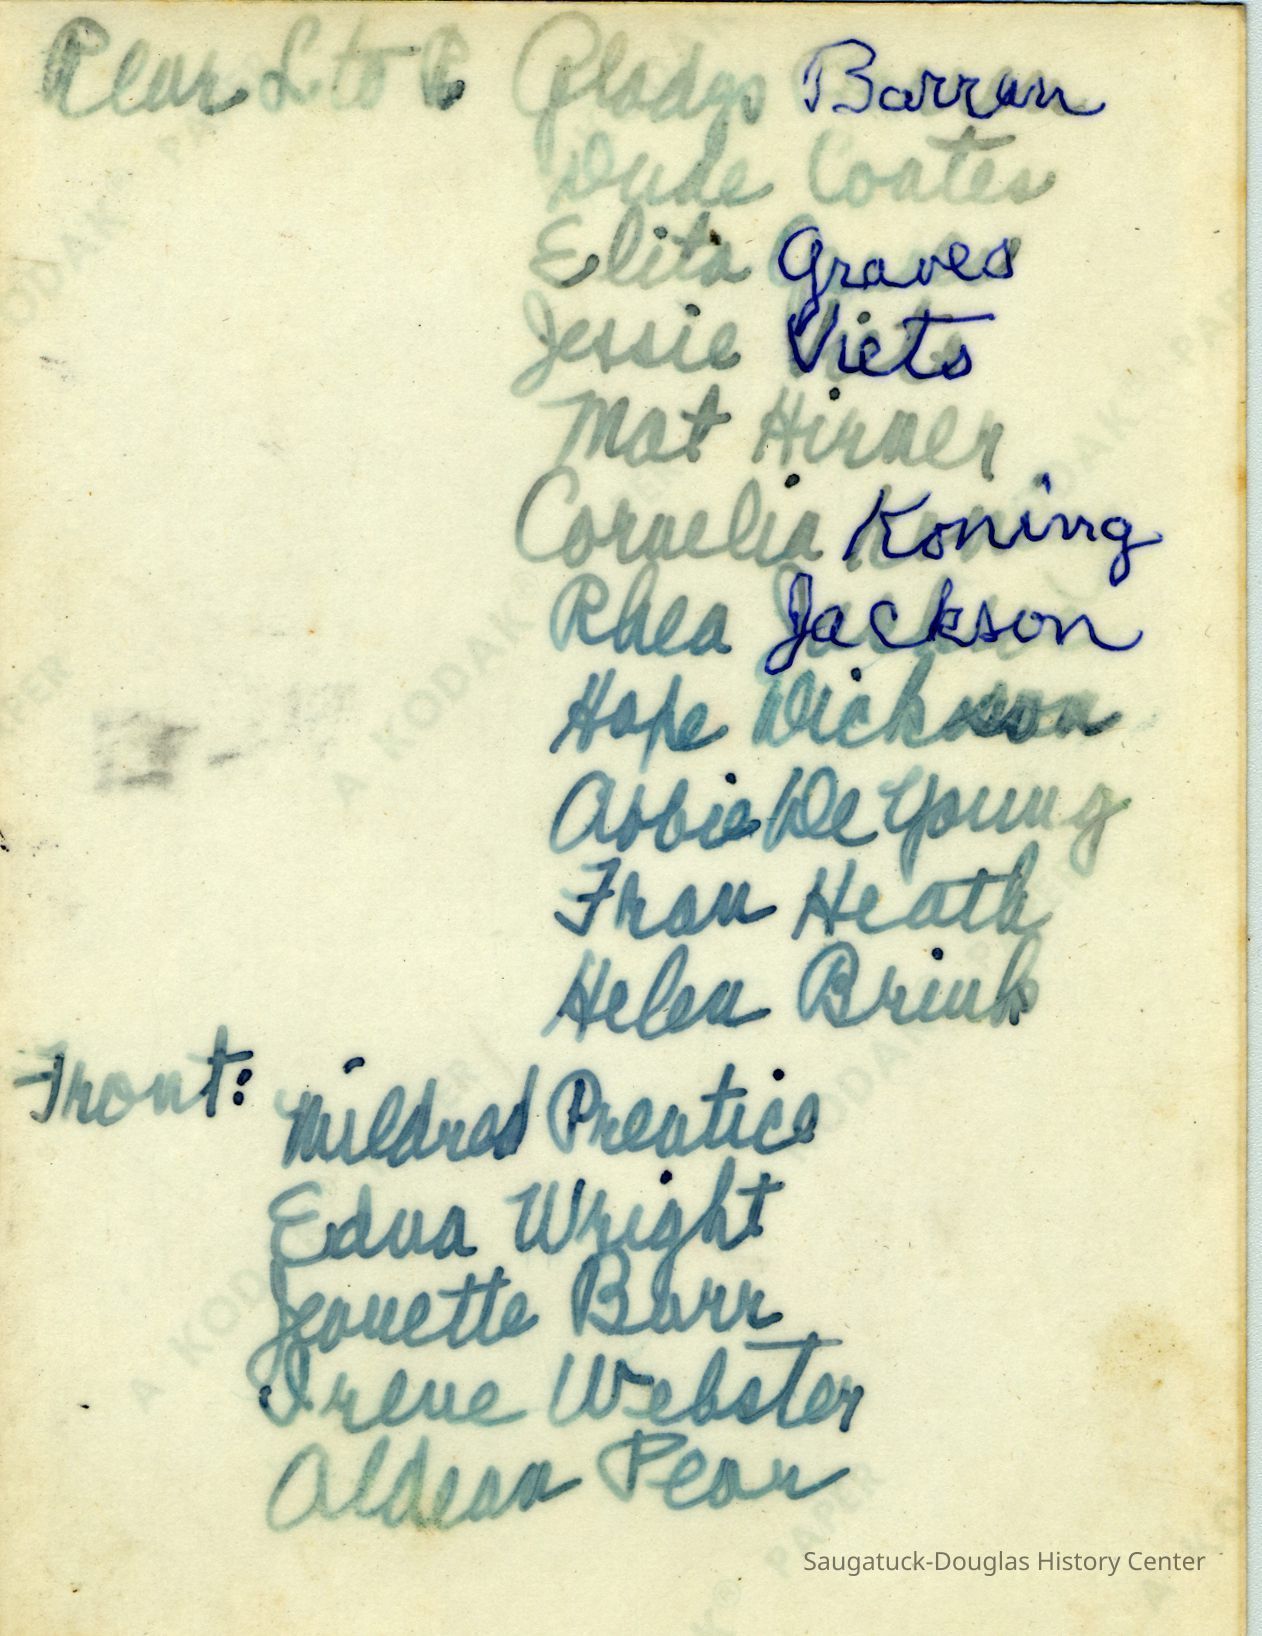 Rear L to R Gladys Barron
Dude Coates
Elita Graves
Jessie Viets
Mat Hirner
Cornelia Koning
Rhea Jackson
Hope Dickinson
Abbie De Young
Fran Heath
Helen Brink
Front: Mildred Prentice
Edna Wright
Jeanette Barr
Irene Webster
Aldean Pear
Saugatuck-Douglas History Center